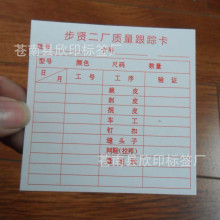 步贤二厂质量跟踪卡
型号 颜色 尺码 数量
日 月 工号 工序 验证
裁皮
削皮
批皮
车工
钉扣
缝头子
间鞋(拉帮)
苍南县欣印标签厂
苍南县欣印标签厂